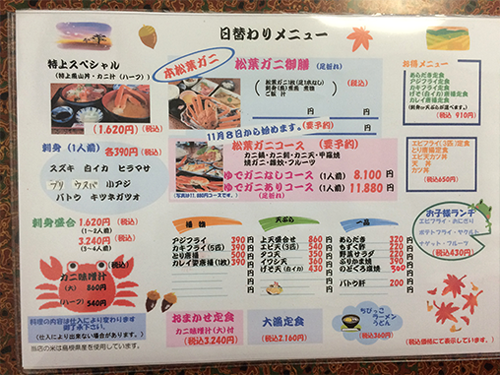 日替わりメニュー
特上スペシャル
(特上鳥山丼・カニ汁(ハーフ))
(1.620円) (税込)
本松葉ガニ
松葉ガニ御膳 (足折れ)
ご飯 汁
(税込)
円
円
円
11月8日から始めます。(要予約)
松葉ガニコース (要予約)
カニ鍋・カニ刺・カニ天・甲羅焼
焼ガニ・雑炊・フルーツ
ゆでガニなしコース (1人前) 8.100円
ゆでガニありコース (1人前) 11.880円
(税込)
お得メニュー
あらだき定食
アジフライ定食
カキフライ定食
げそ(白イカ)定食
カレイ唐揚定食
(税込) 910円
エビフライ(3匹)定食
とり唐揚定食
エビ天カツ丼
天丼
カツ丼
(税込)650円
刺身 (1人前) 各390円 (税込)
スズキ 白イカ ヒラマサ
ブリ 小アジ
バトウ キツネガツオ
刺身盛合 1.620円 (税込)
(1〜2人前)
3.240円 (税込)
(4〜6人前)
カニ味噌汁 (税込)
(大) 860円
(ハーフ) 540円
揚物
アジフライ 390円
カキフライ(5匹) 540円
とり唐揚 500円
カレイ姿唐揚(1枚) 390円
円
円
円
天ぷら
上天盛合せ 860円
エビ天(5匹) 540円
タコ天 430円
イワシ天 360円
げそ天(白イカ) 430円
円
円
一品
あらだき 320円
もずく酢 320円
野菜サラダ 220円
ぶりかま焼 390円
のどぐろ塩焼 500円
バトウ酢 320円
円
お子様ランチ
エビフライ・おにぎり
ポテトフライ・ヤクルト
ナゲット・フルーツ
(税込430円)
料理の内容は仕入により変わります
御了承下さい。
(仕入により出来ない場合があります。)
当店の米は島根県産を使用しています。
おまかせ定食
カニ味噌汁(大)付
(税込3.240円)
大漁定食
(税込2.160円)
ちびっこ
ラーメン
うどん
(税込360円)
(税込価格にて表示しています。)